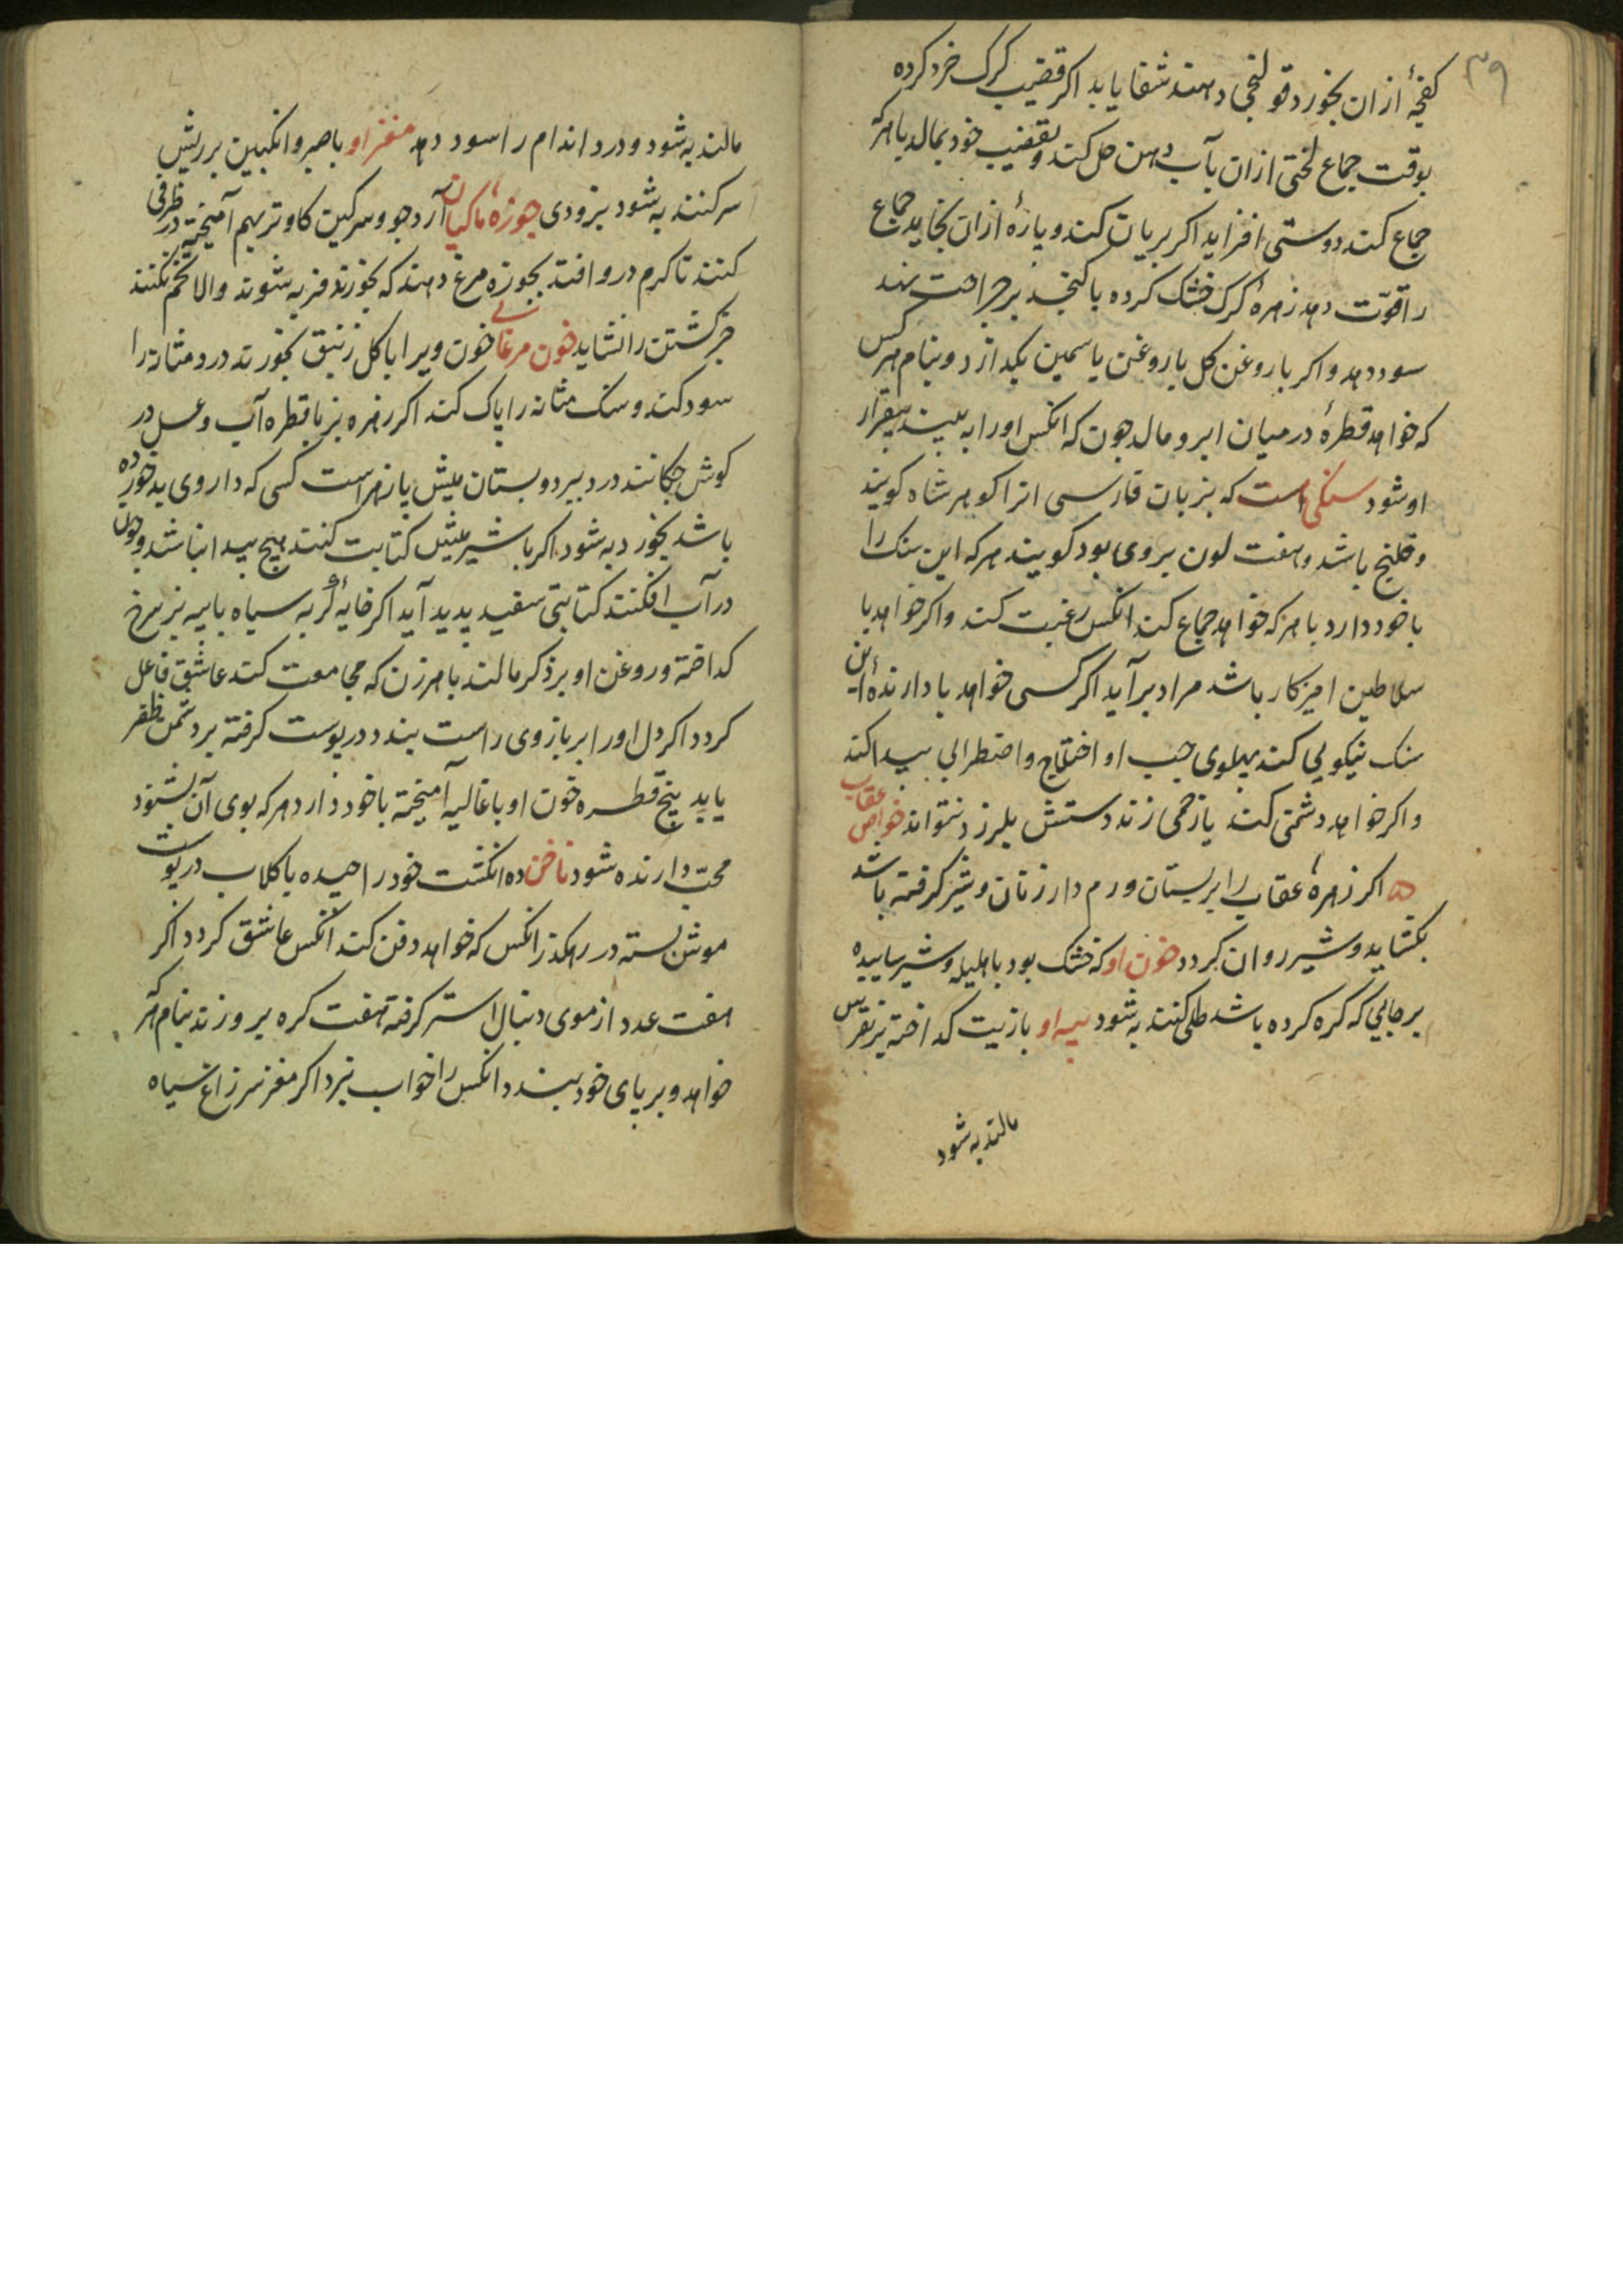 ۳۹
کفچهٔ ازان بخورد قولنجی دهند شفا یابد اکر قضیب کرک خرد کرده
بوقت جماع لختی ازان بآب دهن حل کند و بقضیب خود بمالد با هرکه
جماع کند دوستی افزاید اکر بریان کند و پارهٔ ازان بخاید جماع
را قوّت دهد زهرهٔ کرک خشک کرده با کنجد بر جراحت نهند
سود دهد و اکر با روغن کل یا روغن یاسمین بکدازد و بنام هرکس
که خواهد قطرهٔ در میان ابرو مالد جون که انکس او را به بیند بیقرار
او شود سنکی است که بزبان فارسی انرا کوهر شاه کویند
و باشد و هفت لون بر وی بود کویند هرکه این سنک را
با خود دارد با هرکه خواهد جماع کند انکس رغبت کند و اکر خواهد با
سلاطین امیزکار باشد مراد برآید اکر کسی خواهد با دارندهٔ این
سنک نیکویی کند پهلوی جب او اختلاج و اضطرابی پیدا کند
و اکر خواهد دشمنی کند یا زخمی زند دستش بلرزد نتواند خواص عقاب
اکر زهرهٔ عقاب را بر پستان ورم دار زنان و شیر کرفته باشد
بکشاید و شیر روان کردد خون او که خشک بود با هلیله و شیر ساییده
بر جایی که کره کرده باشد طلی کنند به شود پیه او با زیت کداخته بر نقرس
مالند به شود
مالند به شود و درد اندام را سود دهد مغز او با صبر و انکبین بر ریش
سر کنند به شود بزودی جوزهٔ ماکیان آرد جو و سرکین کاو تر بهم آمیخته در ظرفی
کنند تا کرم درو افتد بجوزه مرغ دهند که بخورند فربه شوند والا تخم نکنند
جز کشتن را نشاید خون مرغابی خون ویرا با کل زنبق بخورند درد مثانه را
سود کند و سنک مثانه را پاک کند اکر زهره بز با قطره آب و عسل در
کوش جکانند درد ببرد و بستان میش پازهر است کسی که داروی بد خورده
باشد بخورد به شود اکر با شیر میش کتابت کنند هیج پیدا نباشد و جون
در آب افکنند کتابتی سفید پدید آید اکر خایهٔ کربه سیاه با پیه بز سرخ
کداخته و روغن او بر ذکر مالند با هر زن که مجامعت کند عاشق فاعل
کردد اکر دل او را بر بازوی راست بندد در پوست کرفته بر دشمن ظفر
یابد پنج قطره خون او با غالیه آمیخته با خود دارد هرکه بوی آن بشنود
محبّ دارنده شود ناخن ده انکشت خود را جیده با کلاب در پوست
موش بسته در رهکذر انکس که خواهد دفن کند انکس عاشق کردد اکر
هفت عدد از موی دنبال استر کرفته هفت کره بر وزند بنام هرکه
خواهد و بر پای خود ببندد انکس را خواب نبرد اکر مغز سر زاغ سیاه